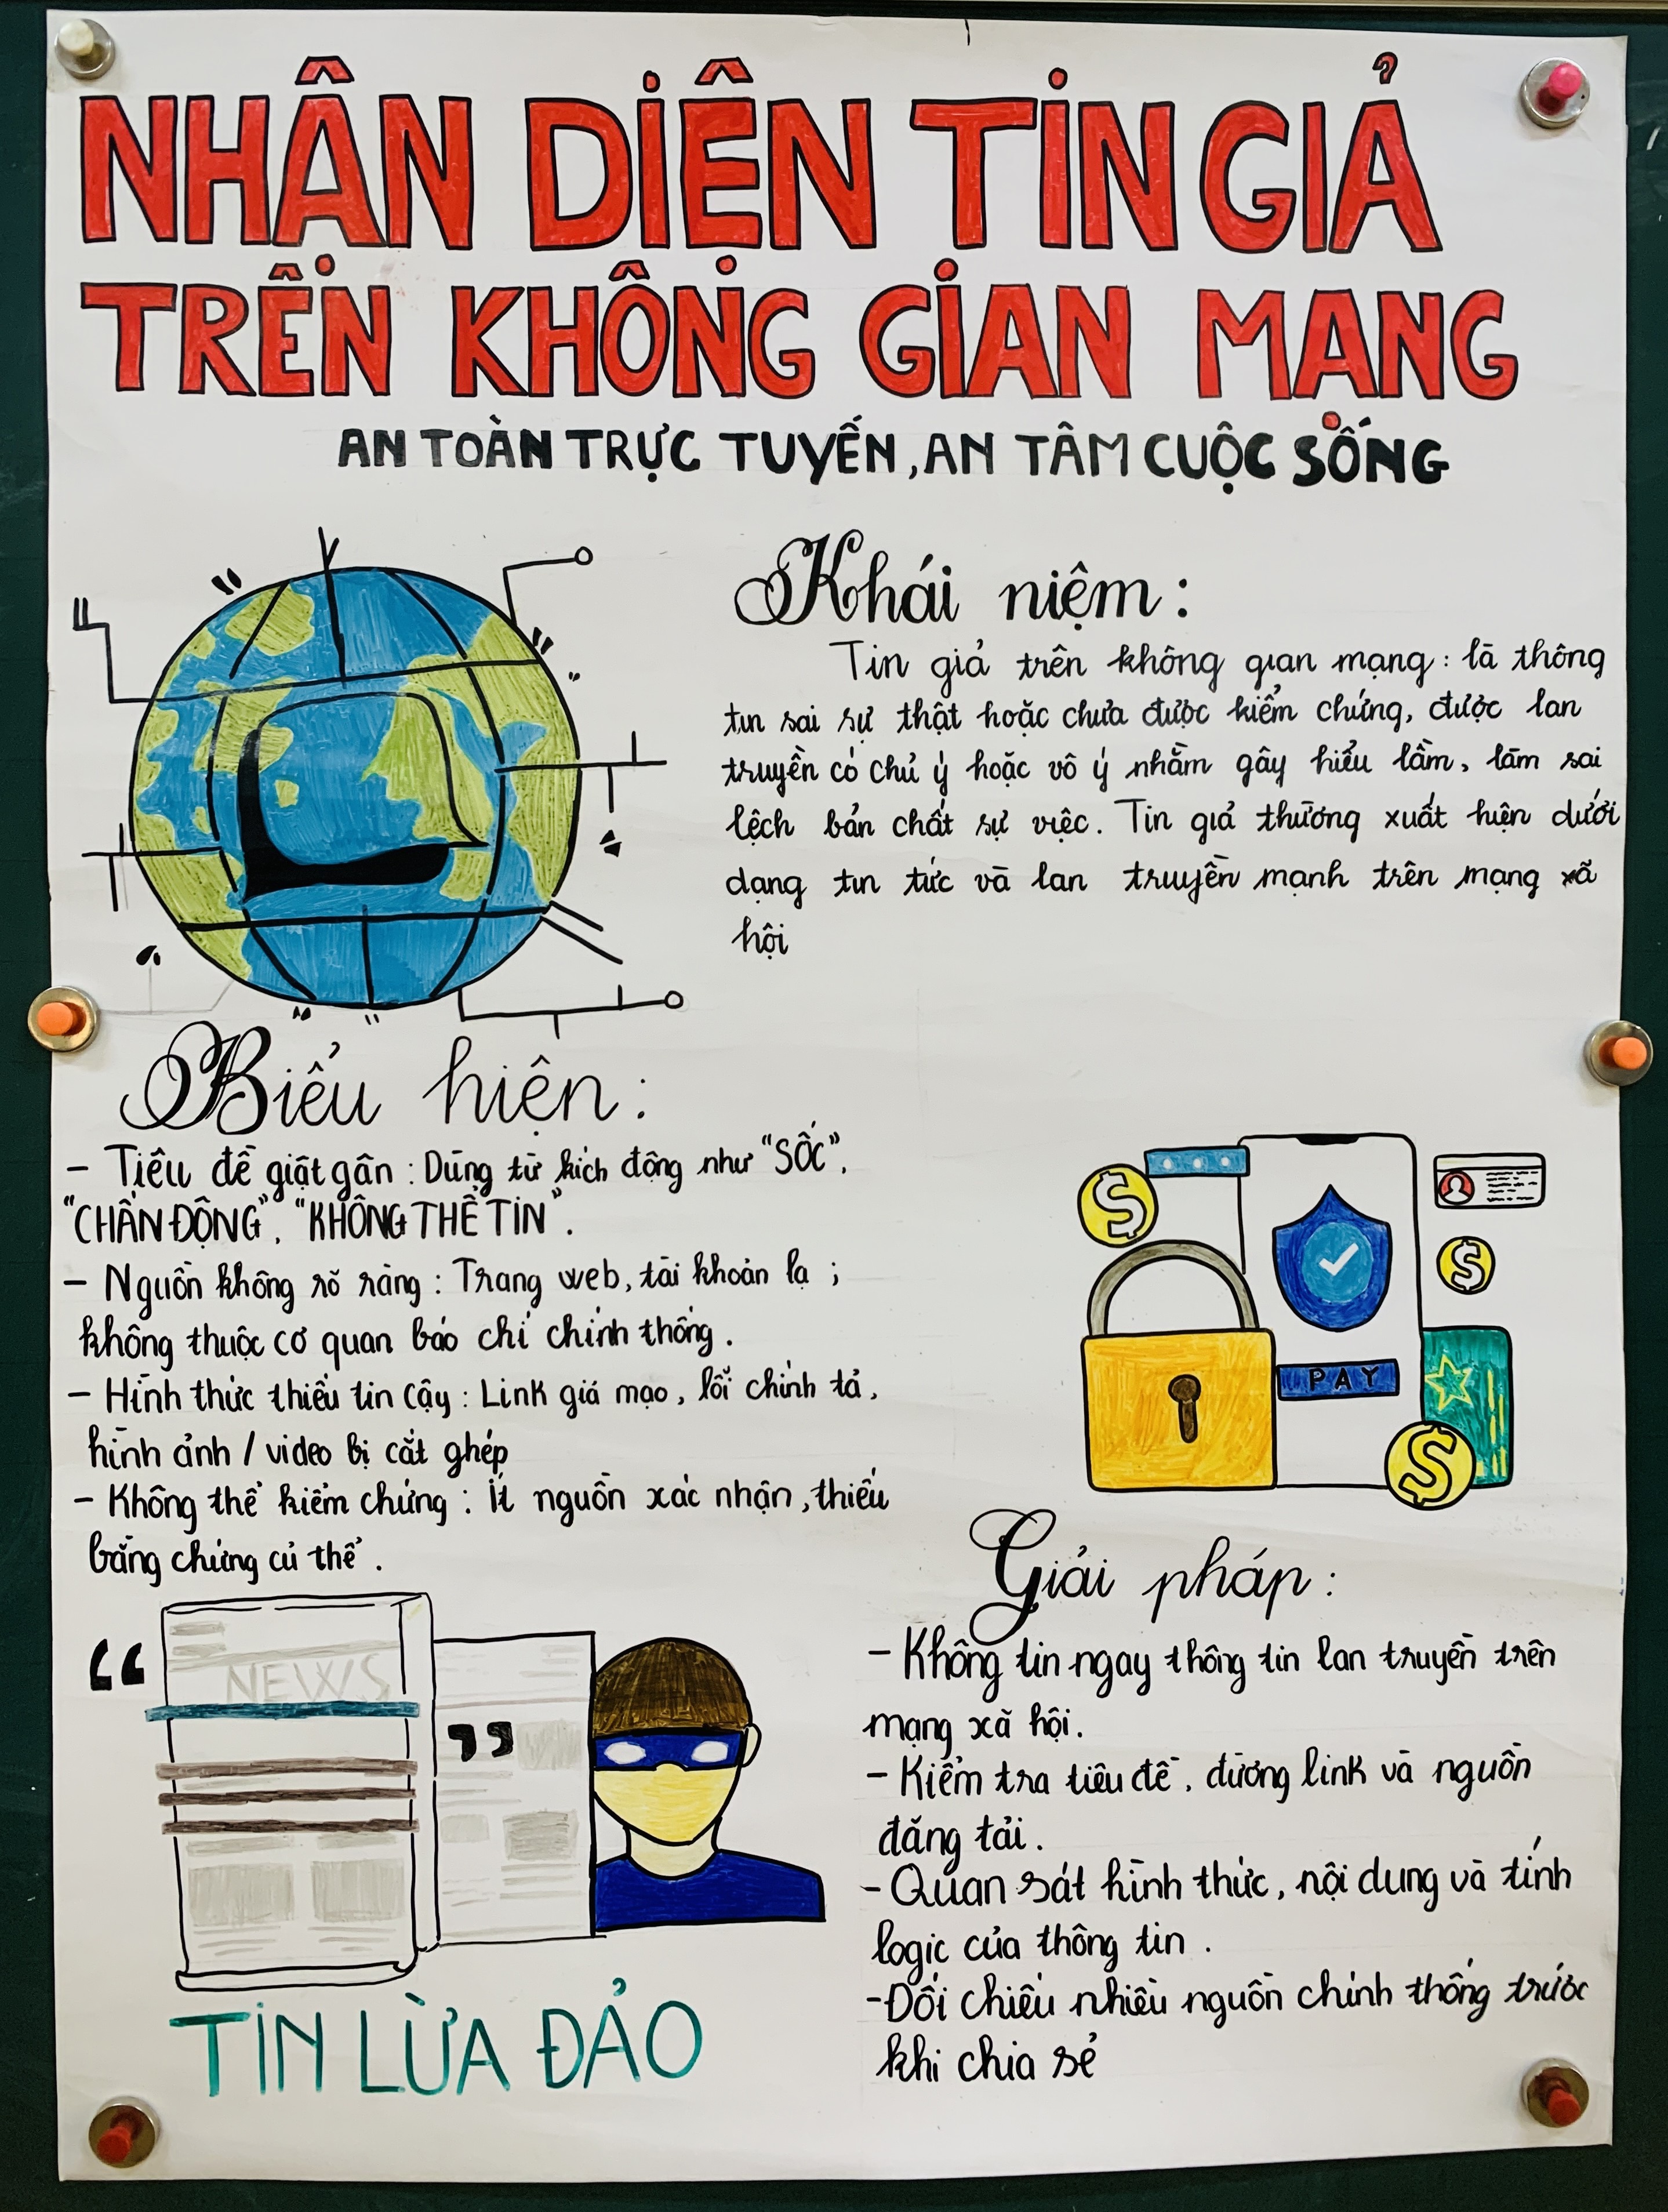 NHẬN DIỆN TIN GIẢ
TRÊN KHÔNG GIAN MẠNG
AN TOÀN TRỰC TUYẾN, AN TÂM CUỘC SỐNG
Khái niệm:
Tin giả trên không gian mạng: là thông
tin sai sự thật hoặc chưa được kiểm chứng, được lan
truyền có chủ ý hoặc vô ý nhằm gây hiểu lầm, làm sai
lệch bản chất sự việc. Tin giả thường xuất hiện dưới
dạng tin tức và lan truyền mạnh trên mạng xã
hội
Biểu hiện:
- Tiêu đề giật gân: Dùng từ kích động như "SỐC",
"CHẤN ĐỘNG", "KHÔNG THỂ TIN".
- Nguồn không rõ ràng: Trang web, tài khoản lạ;
không thuộc cơ quan báo chí chính thống.
- Hình thức thiếu tin cậy: Link giả mạo, lỗi chính tả,
hình ảnh / video bị cắt ghép
- Không thể kiểm chứng: Ít nguồn xác nhận, thiếu
bằng chứng củ thể.
PAY
Giải pháp:
- Không tin ngay thông tin lan truyền trên
mạng xã hội.
- Kiểm tra tiêu đề, đường link và nguồn
đăng tải.
- Quan sát hình thức, nội dung và tính
logic của thông tin.
- Đối chiếu nhiều nguồn chính thống trước
khi chia sẻ
"
NEWS
"
TIN LỪA ĐẢO